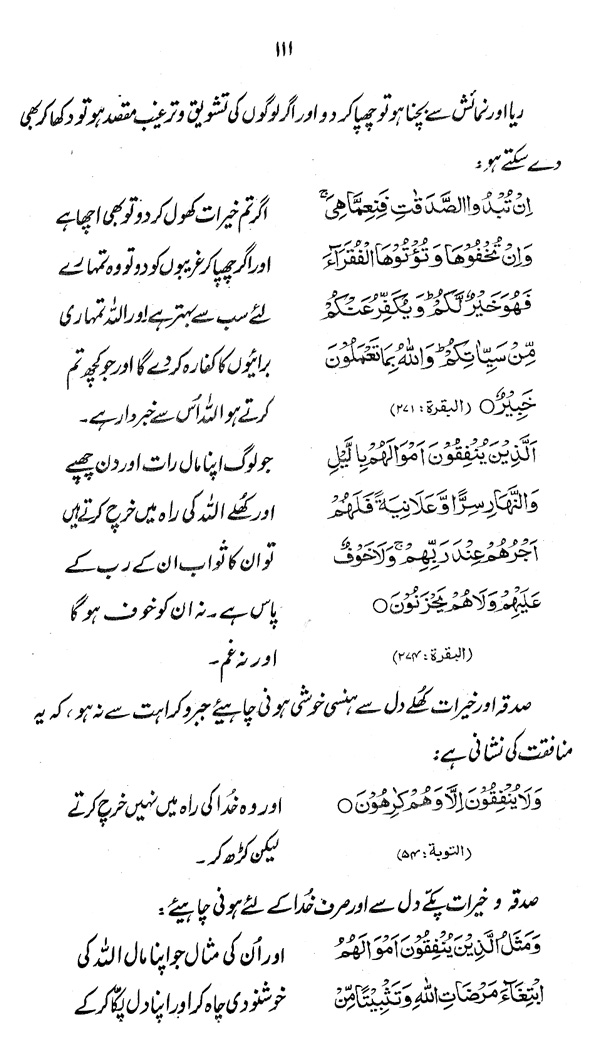 ۱۱۱
ریا اور نمائش سے بچنا ہو تو چھپا کر دو اور اگر لوگوں کی تشویق و ترغیب مقصد ہو تو دکھا کر بھی
دے سکتے ہو:
اِنْ تُبْدُوا الصَّدَقٰتِ فَنِعِمَّا هِیَ ۚ
وَاِنْ تُخْفُوْهَا وَتُؤْتُوْهَا الْفُقَرَآءَ
فَهُوَ خَیْرٌ لَّكُمْ ؕ وَیُكَفِّرُ عَنْكُمْ
مِّنْ سَیِّاٰتِكُمْ ؕ وَاللّٰهُ بِمَا تَعْمَلُوْنَ
خَبِیْرٌ ○ (البقرة: ۲۷۱)
اگر تم خیرات کھول کر دو تو بھی اچھا ہے
اور اگر چھپا کر غریبوں کو دو تو وہ تمہارے
لئے سب سے بہتر ہے اور اللہ تمہاری
برائیوں کا کفارہ کر دے گا اور جو کچھ تم
کرتے ہو اللہ اُس سے خبردار ہے۔
اَلَّذِیْنَ یُنْفِقُوْنَ اَمْوَالَهُمْ بِالَّیْلِ
وَالنَّهَارِ سِرًّا وَّعَلَانِیَةً فَلَهُمْ
اَجْرُهُمْ عِنْدَ رَبِّهِمْ ۚ وَلَا خَوْفٌ
عَلَیْهِمْ وَلَا هُمْ یَحْزَنُوْنَ ○
(البقرة: ۲۷۴)
جو لوگ اپنا مال رات اور دن چھپے
اور کھلے اللہ کی راہ میں خرچ کرتے ہیں
تو ان کا ثواب ان کے رب کے
پاس ہے۔ نہ ان کو خوف ہو گا
اور نہ غم۔
صدقہ اور خیرات کھلے دل سے ہنسی خوشی ہونی چاہیئے جبر و کراہت سے نہ ہو، کہ یہ
منافقت کی نشانی ہے:
وَلَا یُنْفِقُوْنَ اِلَّا وَهُمْ كٰرِهُوْنَ ○
(التوبة: ۵۴)
اور وہ خدا کی راہ میں نہیں خرچ کرتے
لیکن کڑھ کر۔
صدقہ و خیرات پکے دل سے اور صرف خدا کے لئے ہونی چاہیئے:
وَمَثَلُ الَّذِیْنَ یُنْفِقُوْنَ اَمْوَالَهُمُ
ابْتِغَآءَ مَرْضَاتِ اللّٰهِ وَتَثْبِیْتًا مِّنْ
اور اُن کی مثال جو اپنا مال اللہ کی
خوشنودی چاہ کر اور اپنا دل پکا کر کے